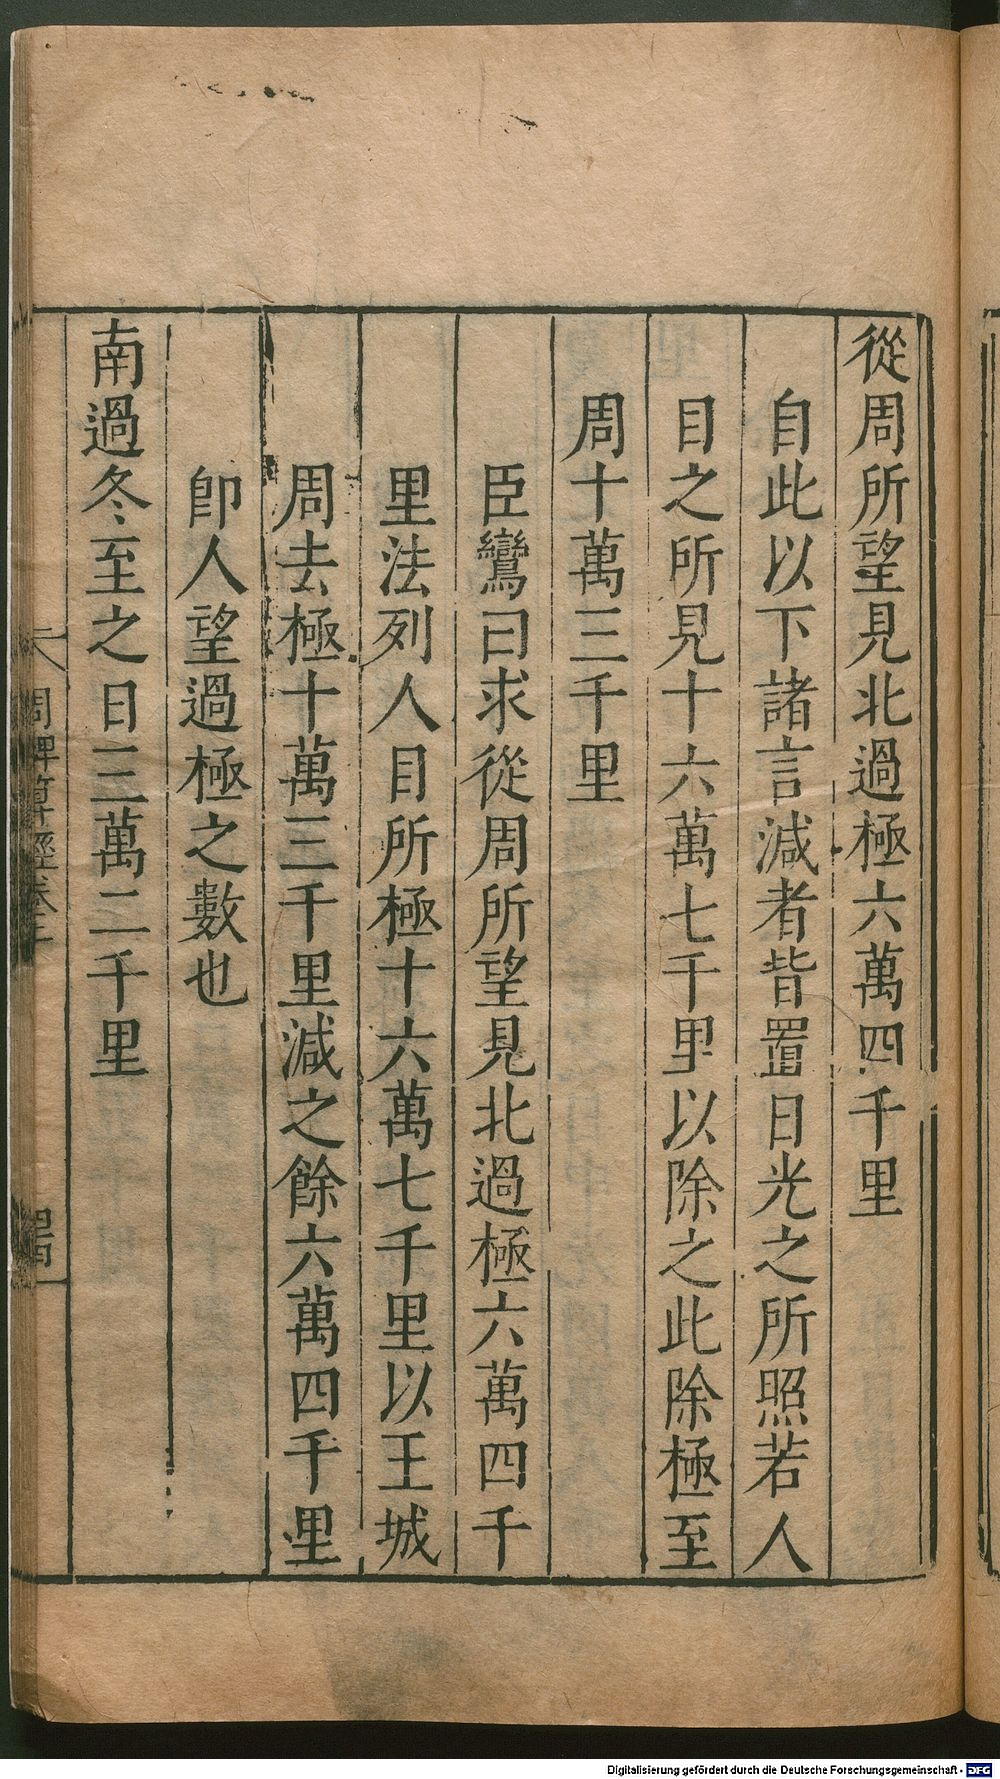 從周所望見北過極六萬四千里
自此以下諸言減者皆置日光之所照若人
目之所見十六萬七千里以除之此除極至
周十萬三千里
臣鸞曰求從周所望見北過極六萬四千
里法列人目所極十六萬七千里以王城
周去極十萬三千里減之餘六萬四千里
卽人望過極之數也
南過冬至之日三萬二千里
周髀算經卷上
Digitalisierung gefördert durch die Deutsche Forschungsgemeinschaft - DFG